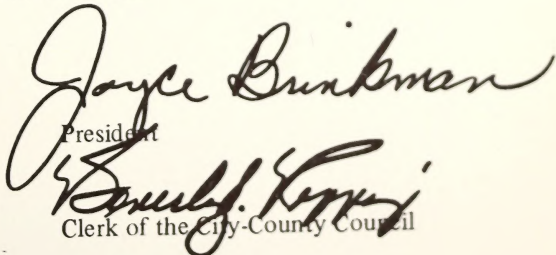 Joyce Brinkman
President
Beverly S. Rippy
Clerk of the City-County Council